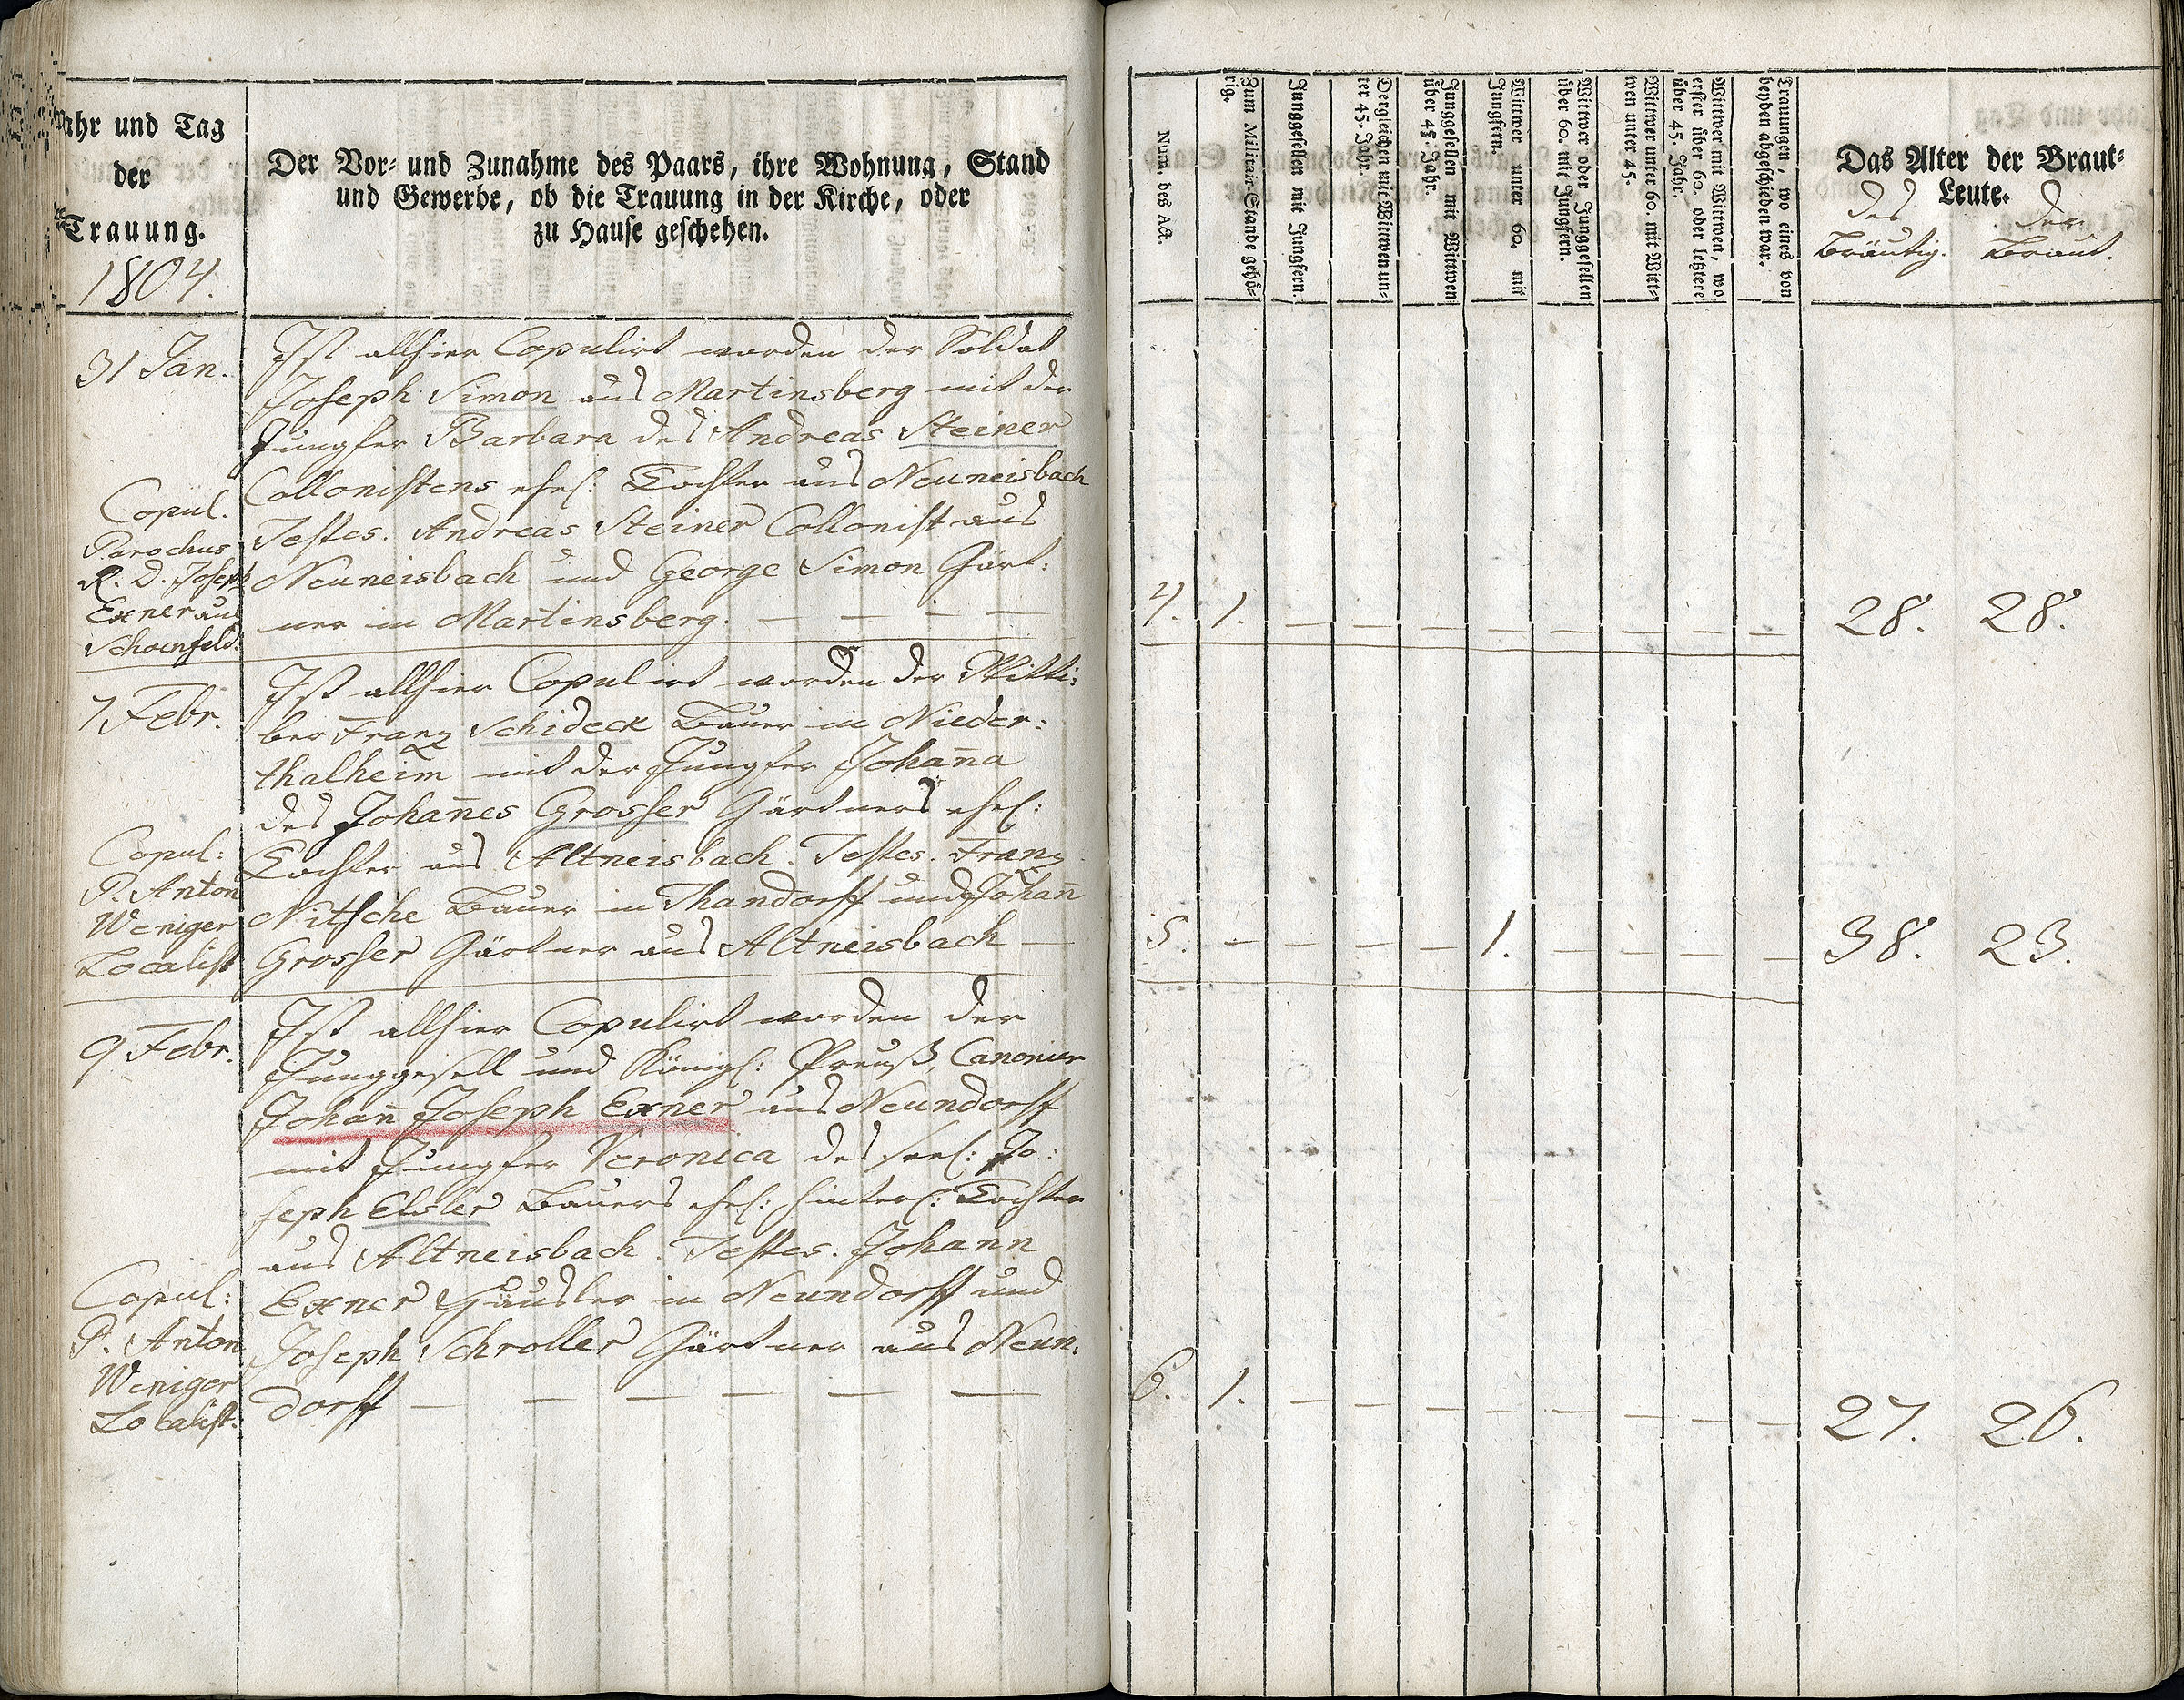 Jahr und Tag
der
Trauung.
1804.
Der Vor- und Zunahme des Paars, ihre Wohnung, Stand
und Gewerbe, ob die Trauung in der Kirche, oder
zu Hause geschehen.
31 Jan.
Copul.
Parochus
R. D. Joseph
Exner aus
Schoenfeld.
Ist allhier Copulirt worden der Soldat
Joseph Simon aus Martinsberg mit der
Jungfer Barbara des Andreas Steiner
Collonistens ehel: Tochter aus Neuneisbach
Testes. Andreas Steiner Collonist aus
Neuneisbach und George Simon Gärt:
ner in Martinsberg. — — — —
7 Febr.
Copul:
P. Anton
Weniger
Localist
Ist allhier Copulirt worden der Witti:
ber Franz Schideck Bauer in Nieder:
thalheim mit der Jungfer Johan̄a
des Johan̄es Grosser Gärtners ehel:
Tochter aus Altneisbach. Testes. Franz
Nitsche Bauer in Thandorff und Johan̄
Grosser Gärtner aus Altneisbach —
9 Febr.
Copul:
P. Anton
Weniger
Localist:
Ist allhier Copulirt worden der
Junggesell und Königl: Preuß. Canonier
Johan̄ Joseph Exner aus Neundorff
mit Jungfer Veronica des seel: Jo:
seph Elsler Bauers ehel: hinterl: Tochter
aus Altneisbach. Testes. Johann
Exner Häusler in Neundorff und
Joseph Schroller Gärtner aus Neun:
dorff — — — — — —
Num. des Act.
Zum Militair-Stande gehö-
rig.
Junggesellen mit Jungfern.
Dergleichen mit Wittwen un-
ter 45. Jahr.
Junggesellen mit Wittwen
über 45. Jahr.
Wittwer unter 60. mit
Jungfern.
Wittwer oder Junggesellen
über 60. mit Jungfern.
Wittwer unter 60. mit Witt-
wen unter 45.
Wittwer mit Wittwen, wo
erster über 60. oder letztere
über 45. Jahr.
Trauungen, wo eines von
beyden abgeschieden war.
Das Alter der Braut-
Leute.
des
Bräutig.
der
Braut.
4. 1. — — — — — — — — 28. 28.
5. — — — — 1. — — — — 38. 23.
6. 1. — — — — — — — — 27. 26.